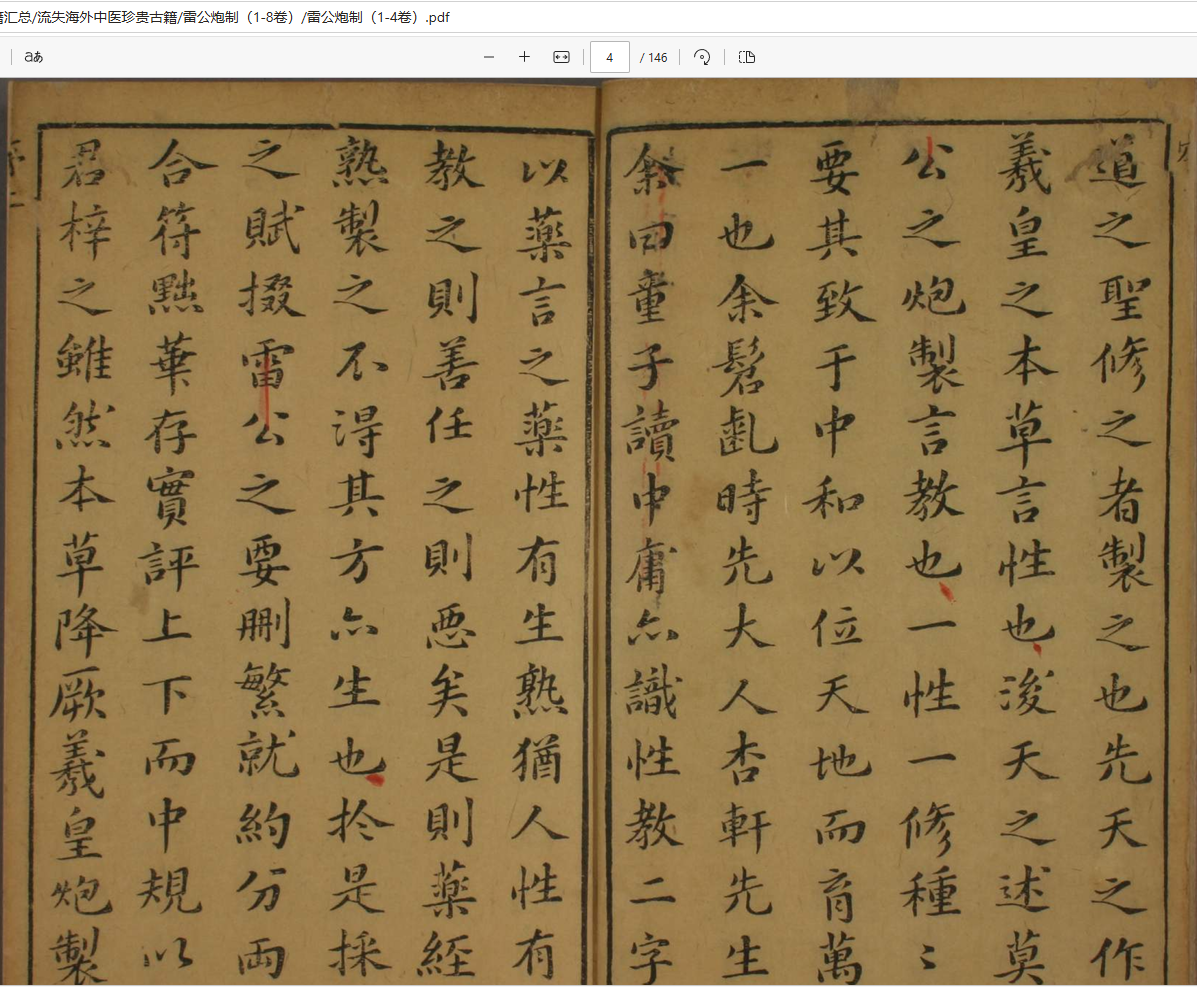 籍汇总/流失海外中医珍贵古籍/雷公炮制（1-8卷）/雷公炮制（1-4卷）.pdf
aあ
4 / 146
道之聖修之者製之也先天之作
羲皇之本草言性也浚天之述莫
公之炮製言教也一性一修種〻
要其致于中和以位天地而育萬
一也余髫齓時先大人杏軒先生
余曰童子讀中庸亦識性教二字
以藥言之藥性有生熟猶人性有
教之則善任之則惡矣是則藥経
熟製之不淂其方亦生也扵是採
之賦掇雷公之要刪繁就約分両
合符黜華存實評上下而中規以
君梓之雖然本草降厥羲皇炮製